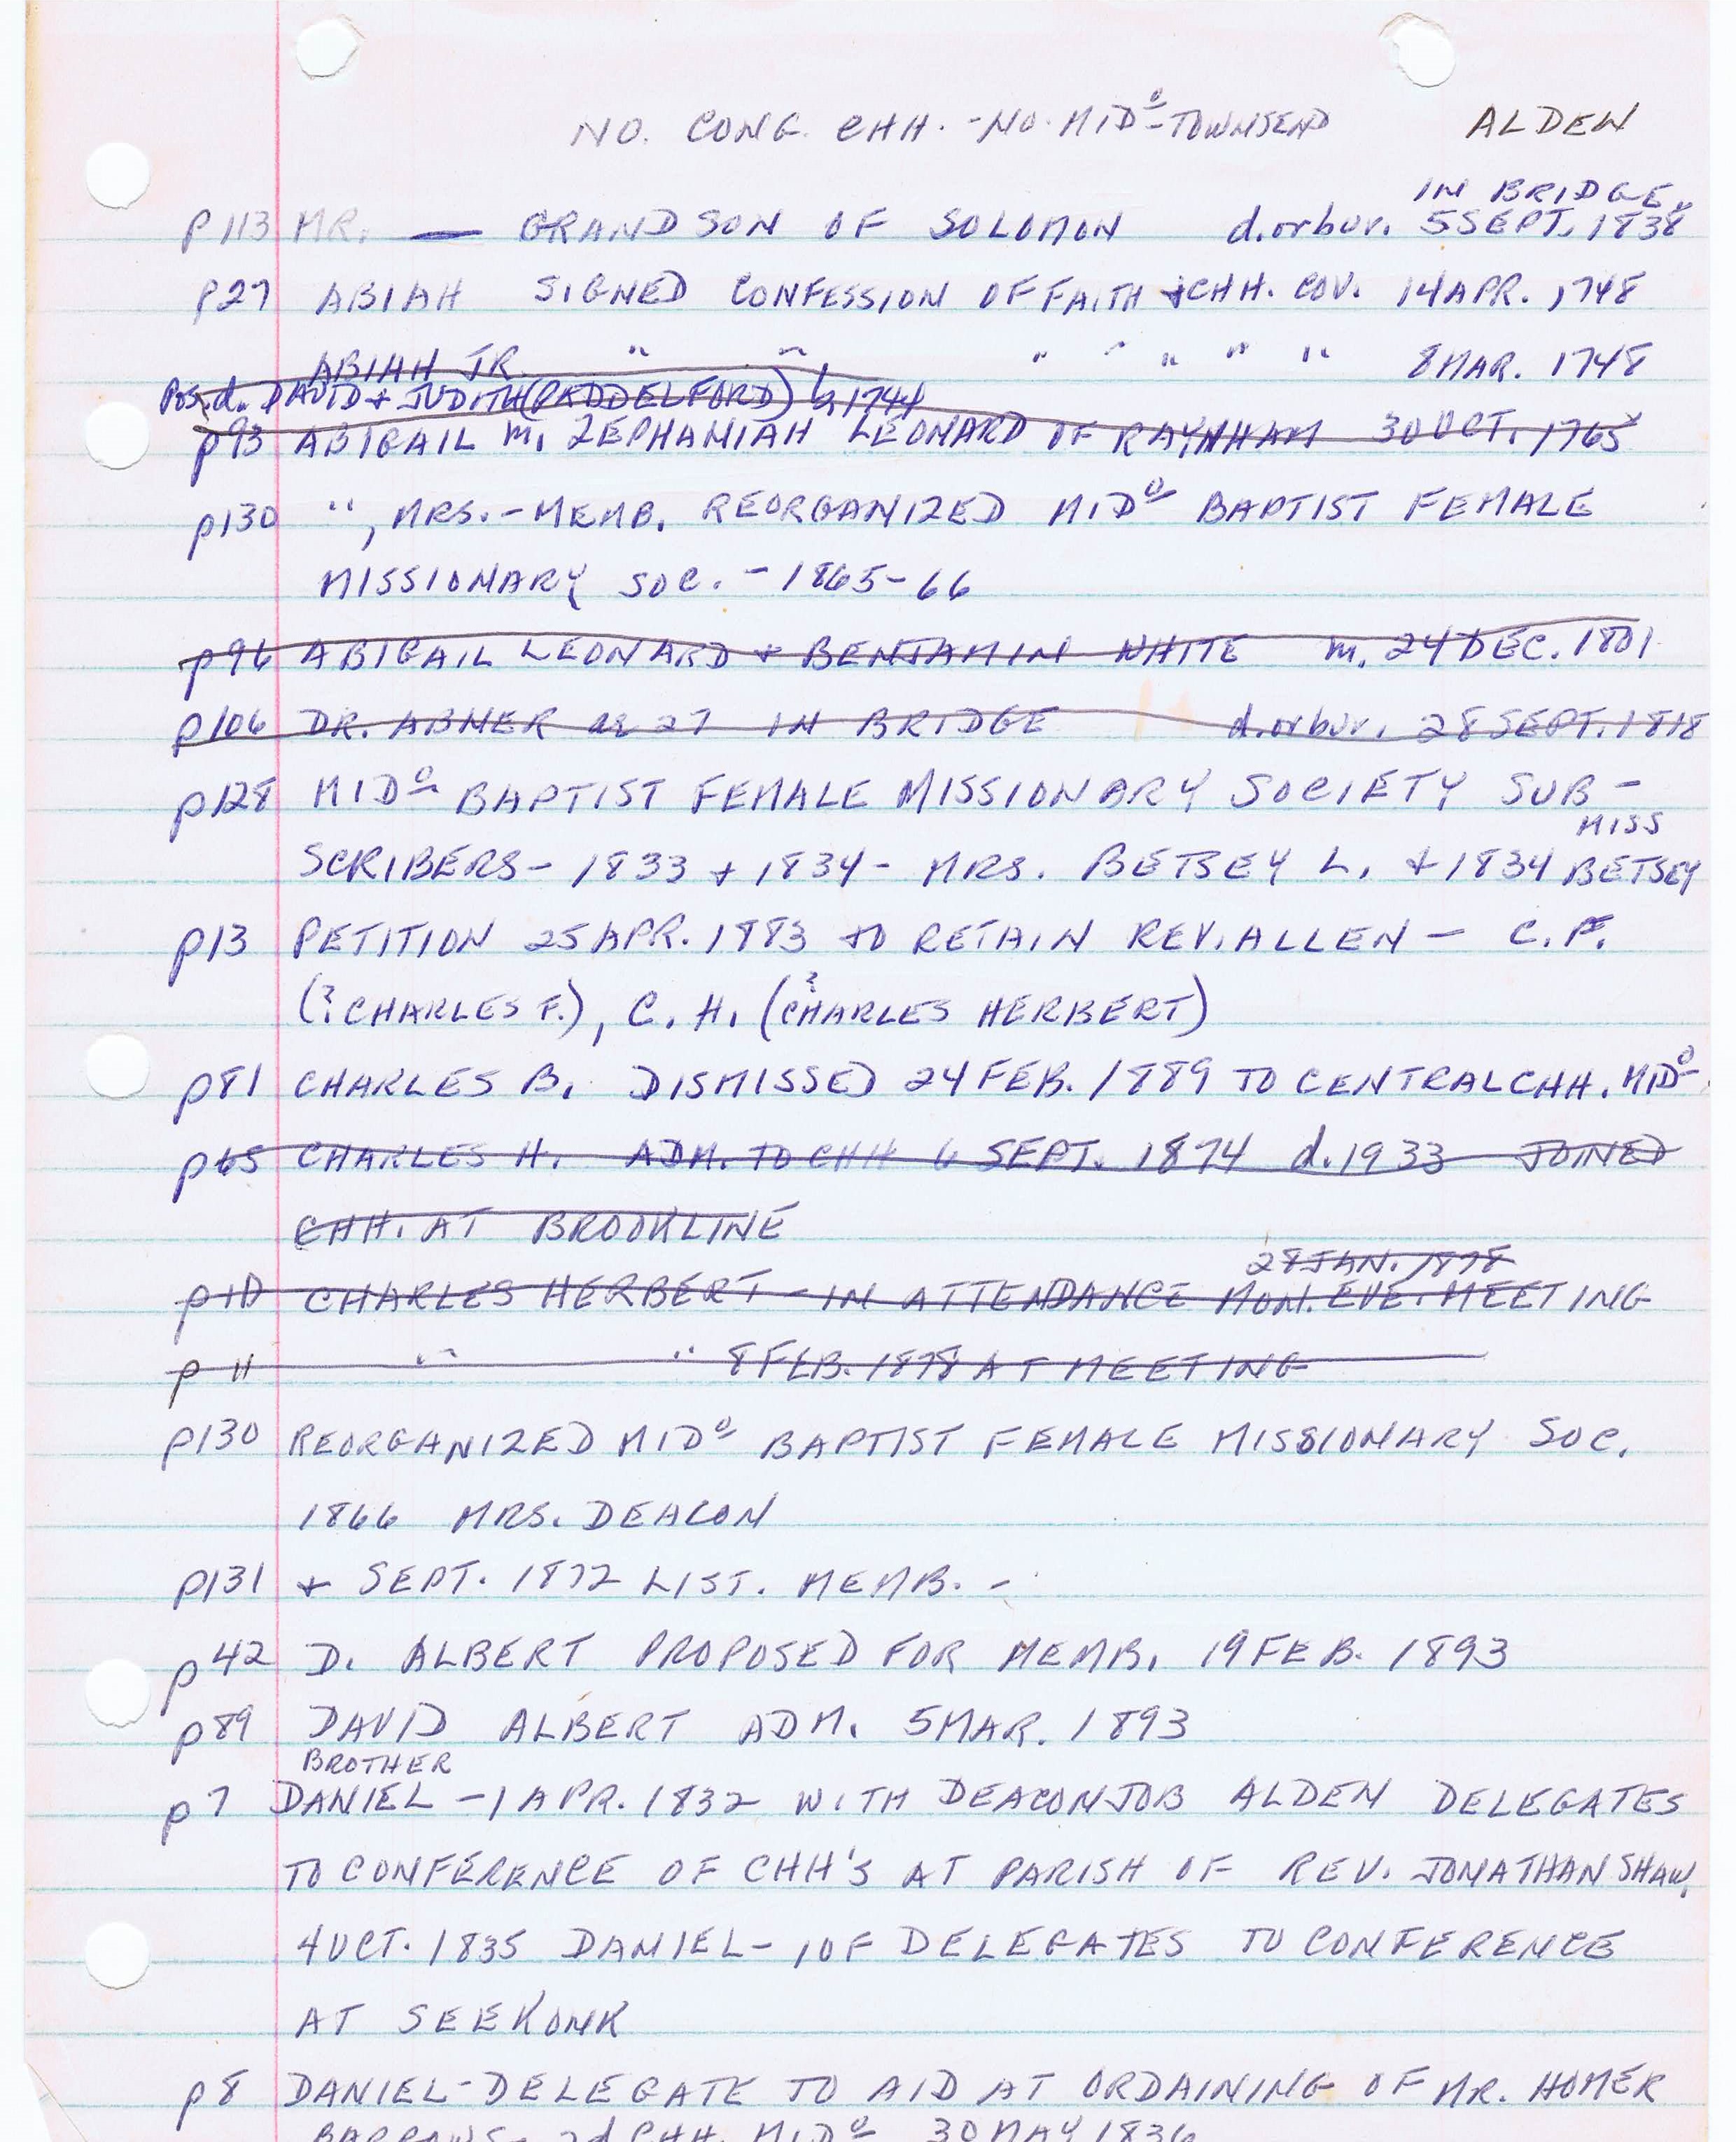 NO. CONG. CHH. - NO. MIDº - TOWNSEND ALDEN
IN BRIDGE.
p113 MR. — GRANDSON OF SOLOMON d. or bur. 5 SEPT. 1838
p27 ABIAH SIGNED CONFESSION OF FAITH + CHH. COV. 14 APR. 1748
ABIAH JR. " " " " " " " 8 MAR. 1748
Pos. d. DAVID + JUDITH (PADDELFORD) b. 1744
p93 ABIGAIL m. ZEPHANIAH LEONARD OF RAYNHAM 30 OCT. 1765
p130 ", MRS. - MEMB. REORGANIZED MIDº BAPTIST FEMALE
MISSIONARY SOC. - 1865-66
p96 ABIGAIL LEONARD + BENJAMIN WHITE m. 24 DEC. 1801
p106 DR. ABNER ae 27 IN BRIDGE d. or bur. 28 SEPT. 1818
p128 MIDº BAPTIST FEMALE MISSIONARY SOCIETY SUB-
MISS
SCRIBERS - 1833 + 1834 - MRS. BETSEY L. + 1834 BETSEY
p13 PETITION 25 APR. 1883 TO RETAIN REV. ALLEN - C. F.
(? CHARLES F.), C. H. (? CHARLES HERBERT)
p81 CHARLES B. DISMISSED 24 FEB. 1889 TO CENTRAL CHH. MIDº
p65 CHARLES H. ADM. TO CHH 6 SEPT. 1874 d. 1933 JOINED
CHH. AT BROOKLINE
28 JAN. 1878
p10 CHARLES HERBERT - IN ATTENDANCE MON. EVE. MEETING
p 11 " " 8 FEB. 1878 AT MEETING
p130 REORGANIZED MIDº BAPTIST FEMALE MISSIONARY SOC.
1866 MRS. DEACON
p131 + SEPT. 1872 LIST. MEMB. -
p42 D. ALBERT PROPOSED FOR MEMB. 19 FEB. 1893
p89 DAVID ALBERT ADM. 5 MAR. 1893
BROTHER
p7 DANIEL - 1 APR. 1832 WITH DEACON JOB ALDEN DELEGATES
TO CONFERENCE OF CHH'S AT PARISH OF REV. JONATHAN SHAW,
4 OCT. 1835 DANIEL - 1 OF DELEGATES TO CONFERENCE
AT SEEKONK
p8 DANIEL - DELEGATE TO AID AT ORDAINING OF MR. HOMER
BARROWS - 2d CHH. MIDº 30 MAY 1836